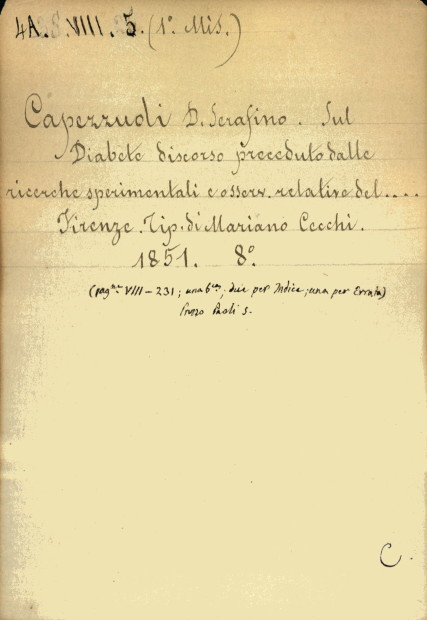 4A. S. VIII. 5. (1.º Mis.)
Capezzuoli D. Serafino. Sul
Diabete discorso preceduto dalle
ricerche sperimentali e osserv. relative del....
Firenze. Tip. di Mariano Cecchi.
1851. 8.º
(pag.ne VIII – 231; una b.ca; due per Indice, una per Errata)
Prezzo Paoli 5.
C.